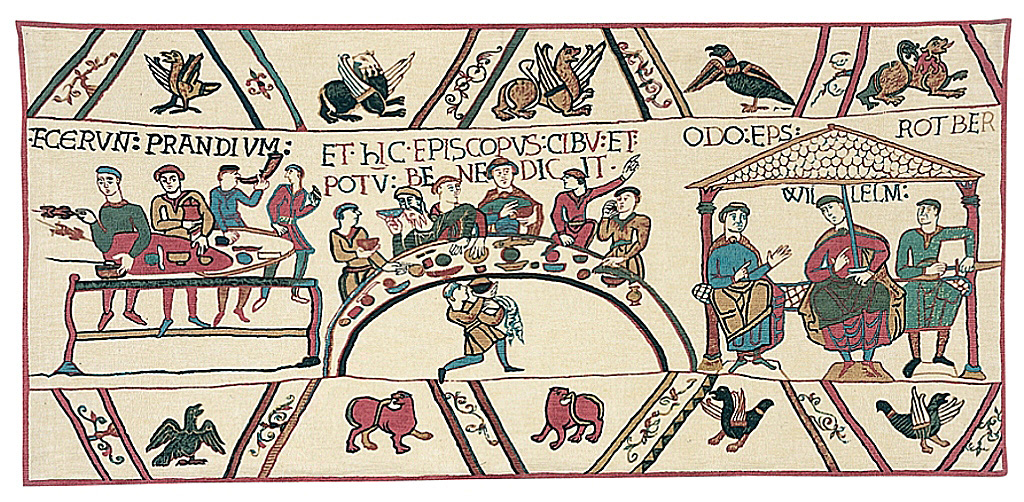 ECERVN: PRANDIVM:
ET·hIC·EPISCOPVS:CIBV:ET·
POTV: BE NE DIC IT·
ODO:EPS:
ROTBER
WIL LELM: